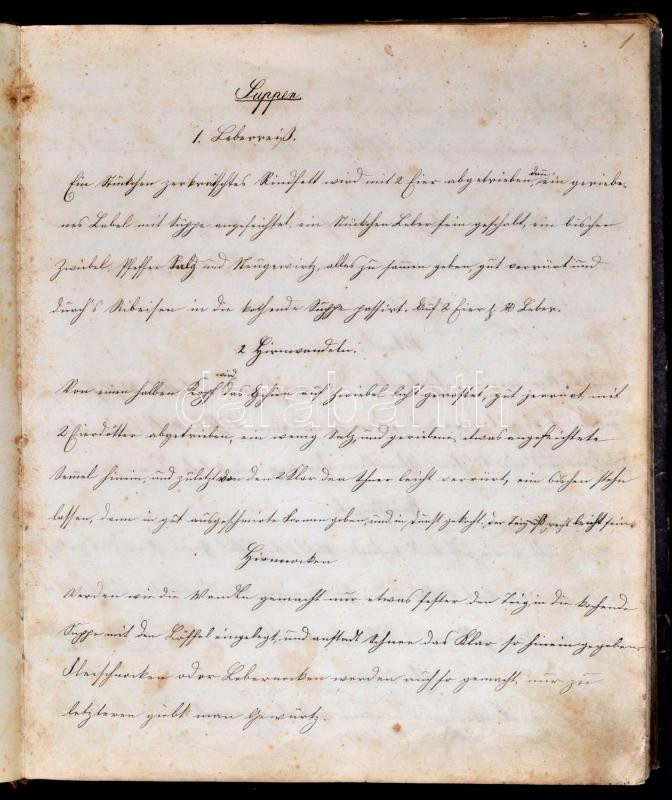 1
Suppen
1. Leberreiß.
Ein Stückchen zerkratschtes Rindfett wird mit 2 Eier abgetrieben, dan ein geriebe-
nes Label mit Suppe angefeichtet, ein Stückchen Leber fein geschabt, ein bischen
Zwibel, Pfeffer Salz und Neugewirtz, alles zu samen geben, gut verrürt und
durch's Ribeisen in die kochende Suppe passirt. Auf 2 Eier ¼ ℔ Leber.
2 Hirnwandeln.
Von einen halben Kopf wird das Gehirn auf Zwiebel licht geröstet, gut zerrürt, mit
2 Eierdötter abgetrieben, ein wenig Salz, und geriebene, etwas angefeichtete
Semel hinein, und zuletzt von den 2 Klar den Schnee leicht verrürt, ein bischen stehn
lassen, dann in gut ausgeschmirte Formen geben, und in Dunst gekocht, der Teig muß recht leicht sein.
Hirnnocken
Werden wie die Wandln gemacht nur etwas fester den Teig in die kochende
Suppe mit den Löffel eingelegt, und anstadt Schnee das Klar so hinein gegeben.
Fleischnocken oder Lebernocken werden auch so gemacht, nur zu
letzteren giebt man Gewürtz.
darabanth